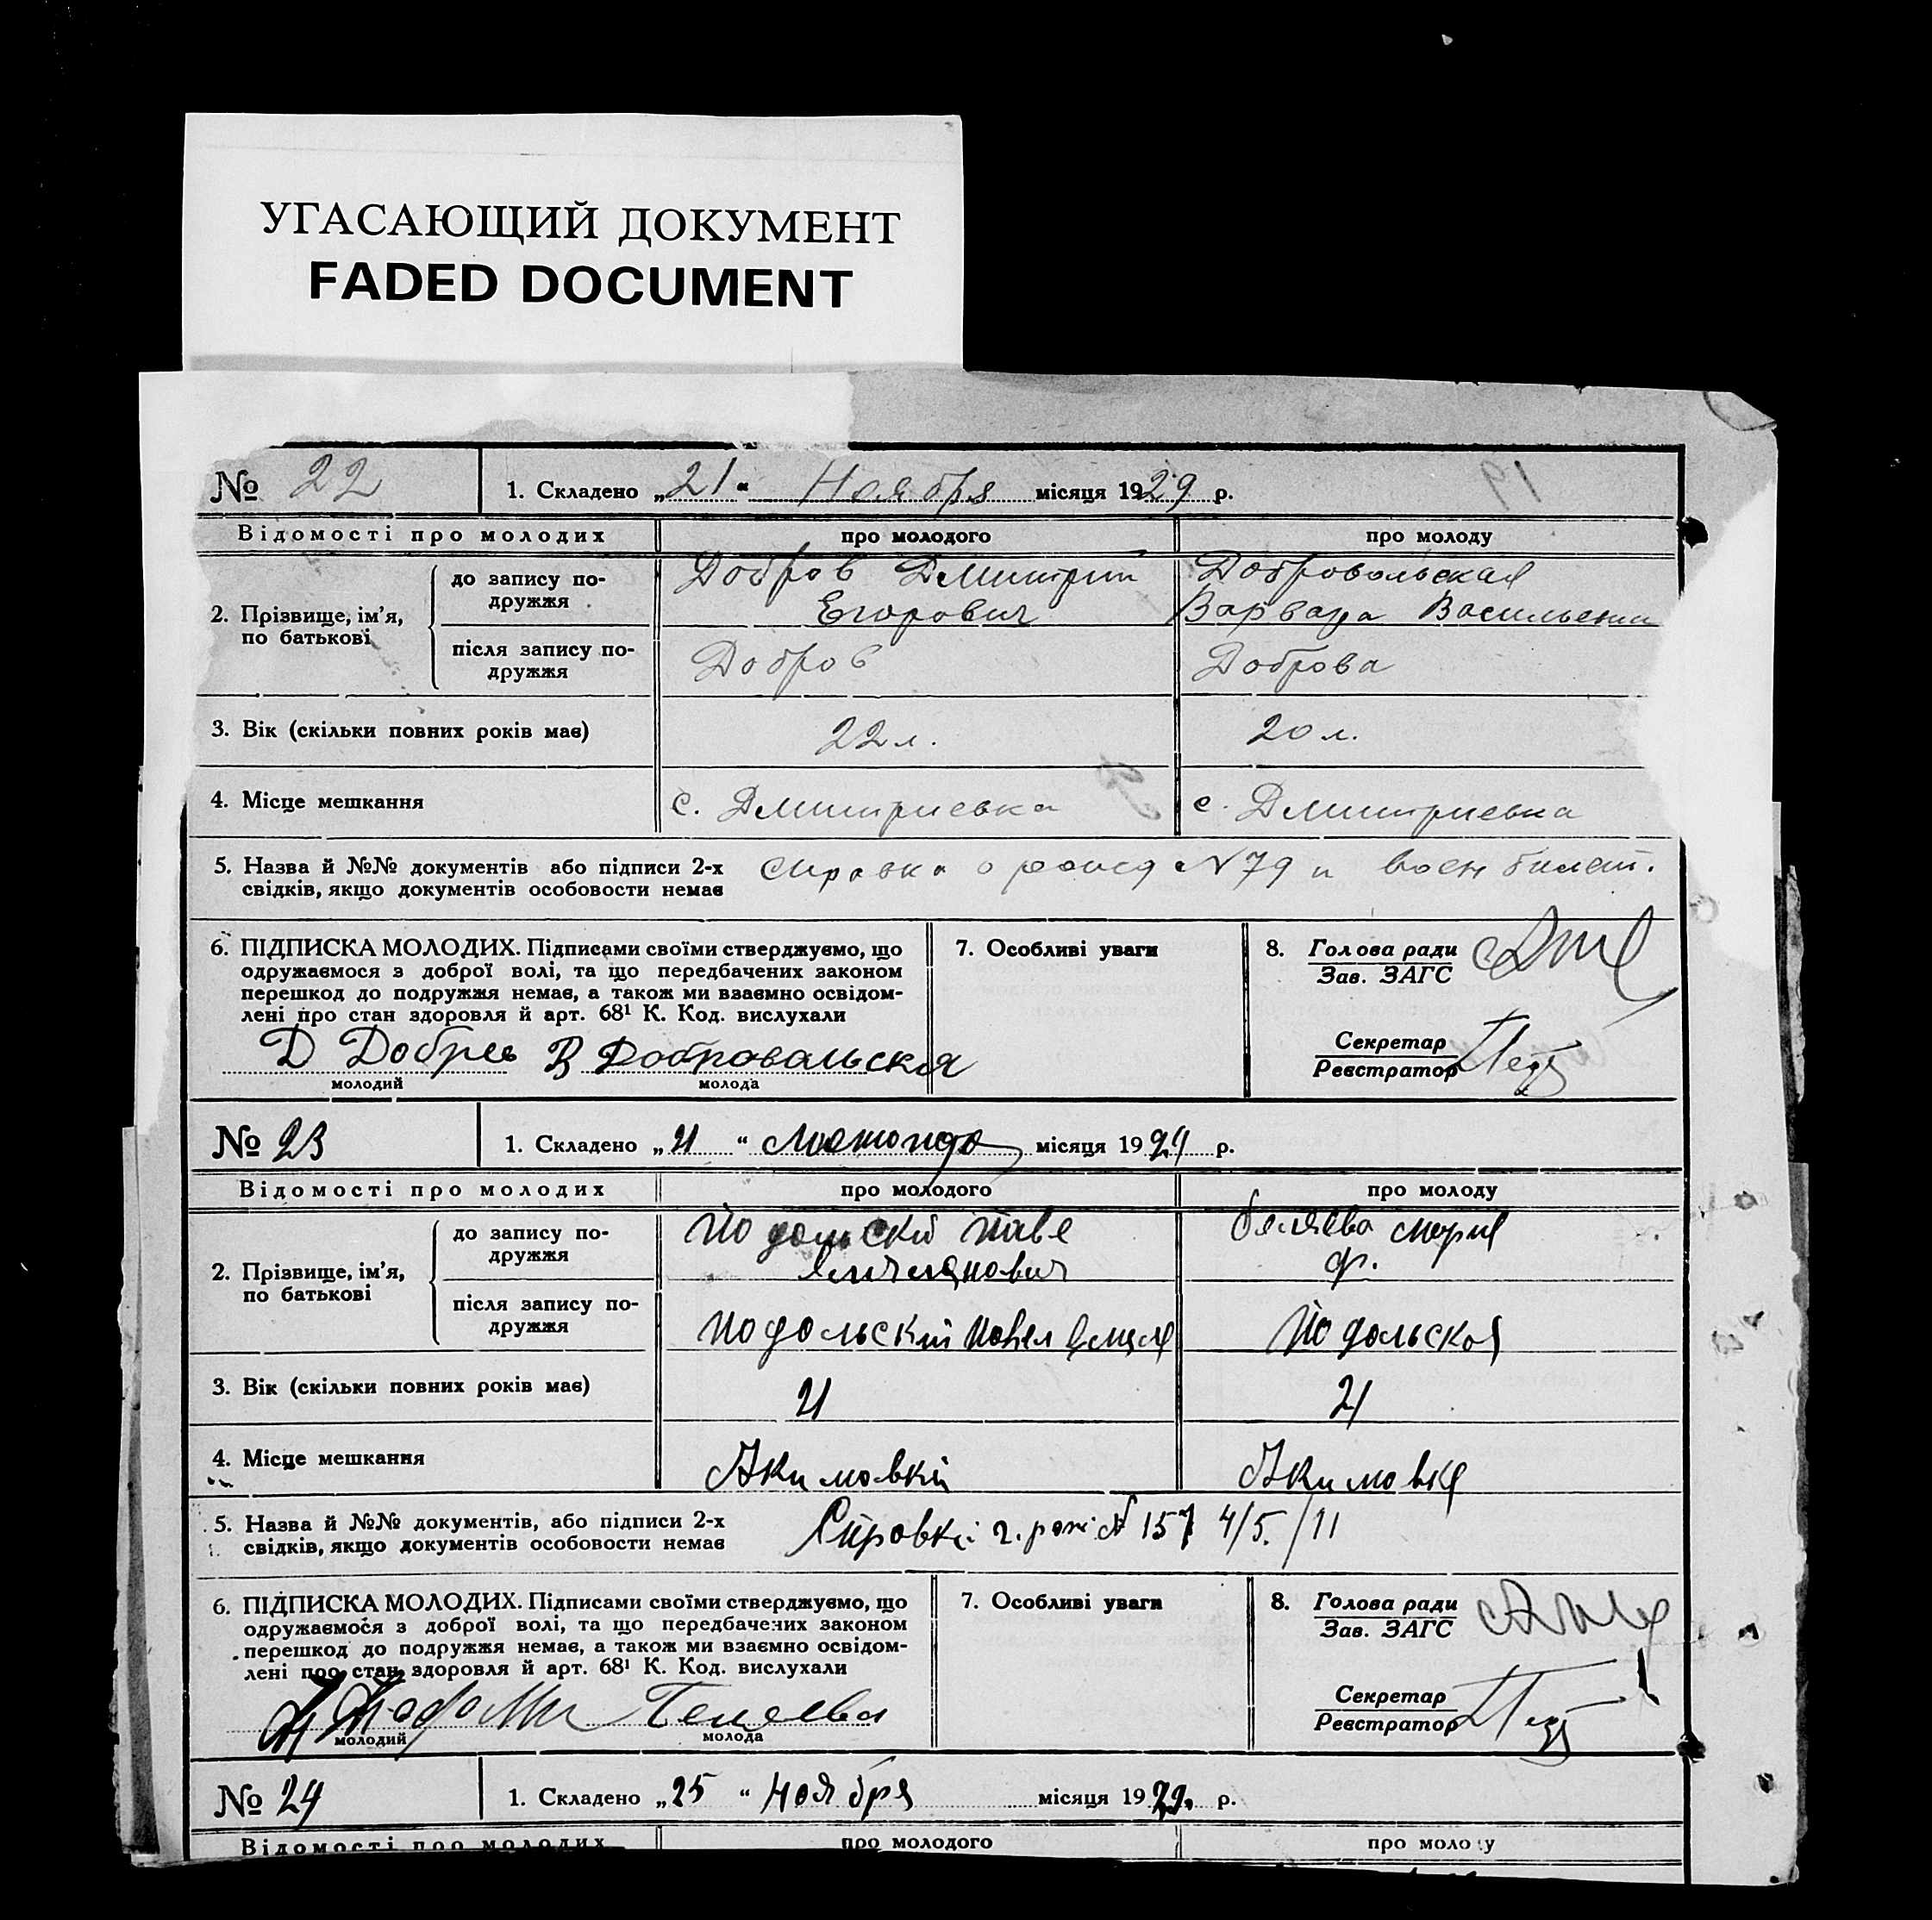 УГАСАЮЩИЙ ДОКУМЕНТ
FADED DOCUMENT
№ 22 1. Складено „21“ Ноября місяця 1929 р.
Відомості про молодих про молодого про молоду
2. Прізвище, ім'я, по батькові
до запису подружжя
Добров Дмитрий
Егорович
Добровольская
Варвара Васильевна
після запису по-
дружжя
Добров Доброва
3. Вік (скільки повних років має) 22 л. 20 л.
4. Місце мешкання с. Дмитриевка с. Дмитриевка
5. Назва й №№ документів або підписи 2-х
свідків, якщо документів особовости немає
Справка о рожд N 79 и воен билет.
6. ПІДПИСКА МОЛОДИХ. Підписами своїми стверджуємо, що
одружаємося з доброї волі, та що передбачених законом
перешкод до подружжя немає, а також ми взаємно освідом-
лені про стан здоров'я й арт. 68¹ К. Код. вислухали
Д Добров В Добровольская
молодий молода
7. Особливі уваги
8. Голова ради
Зав. ЗАГС
Секретар
Реєстратор
№ 23 1. Складено „21“ місяця 1929 р.
Відомості про молодих про молодого про молоду
2. Прізвище, ім'я,
по батькові
до запису по-
дружжя
Подольский Павел
Беляева Мария
Ф.
після запису по-
дружжя
Подольский Павел Подольская
3. Вік (скільки повних років має) 21 21
4. Місце мешкання Акимовка Акимовка
5. Назва й №№ документів, або підписи 2-х
свідків, якщо документів особовости немає
Справка № 157 4/5. /11
6. ПІДПИСКА МОЛОДИХ. Підписами своїми стверджуємо, що
одружаємося з доброї волі, та що передбачених законом
перешкод до подружжя немає, а також ми взаємно освідом-
лені про стан здоровля й арт. 68¹ К. Код. вислухали
молодий молода
7. Особливі уваги
8. Голова ради
Зав. ЗАГС
Секретар
Реєстратор
№ 24 1. Складено „25“ Ноября місяця 1929. р.
Відомості про молодих про молодого про молоду